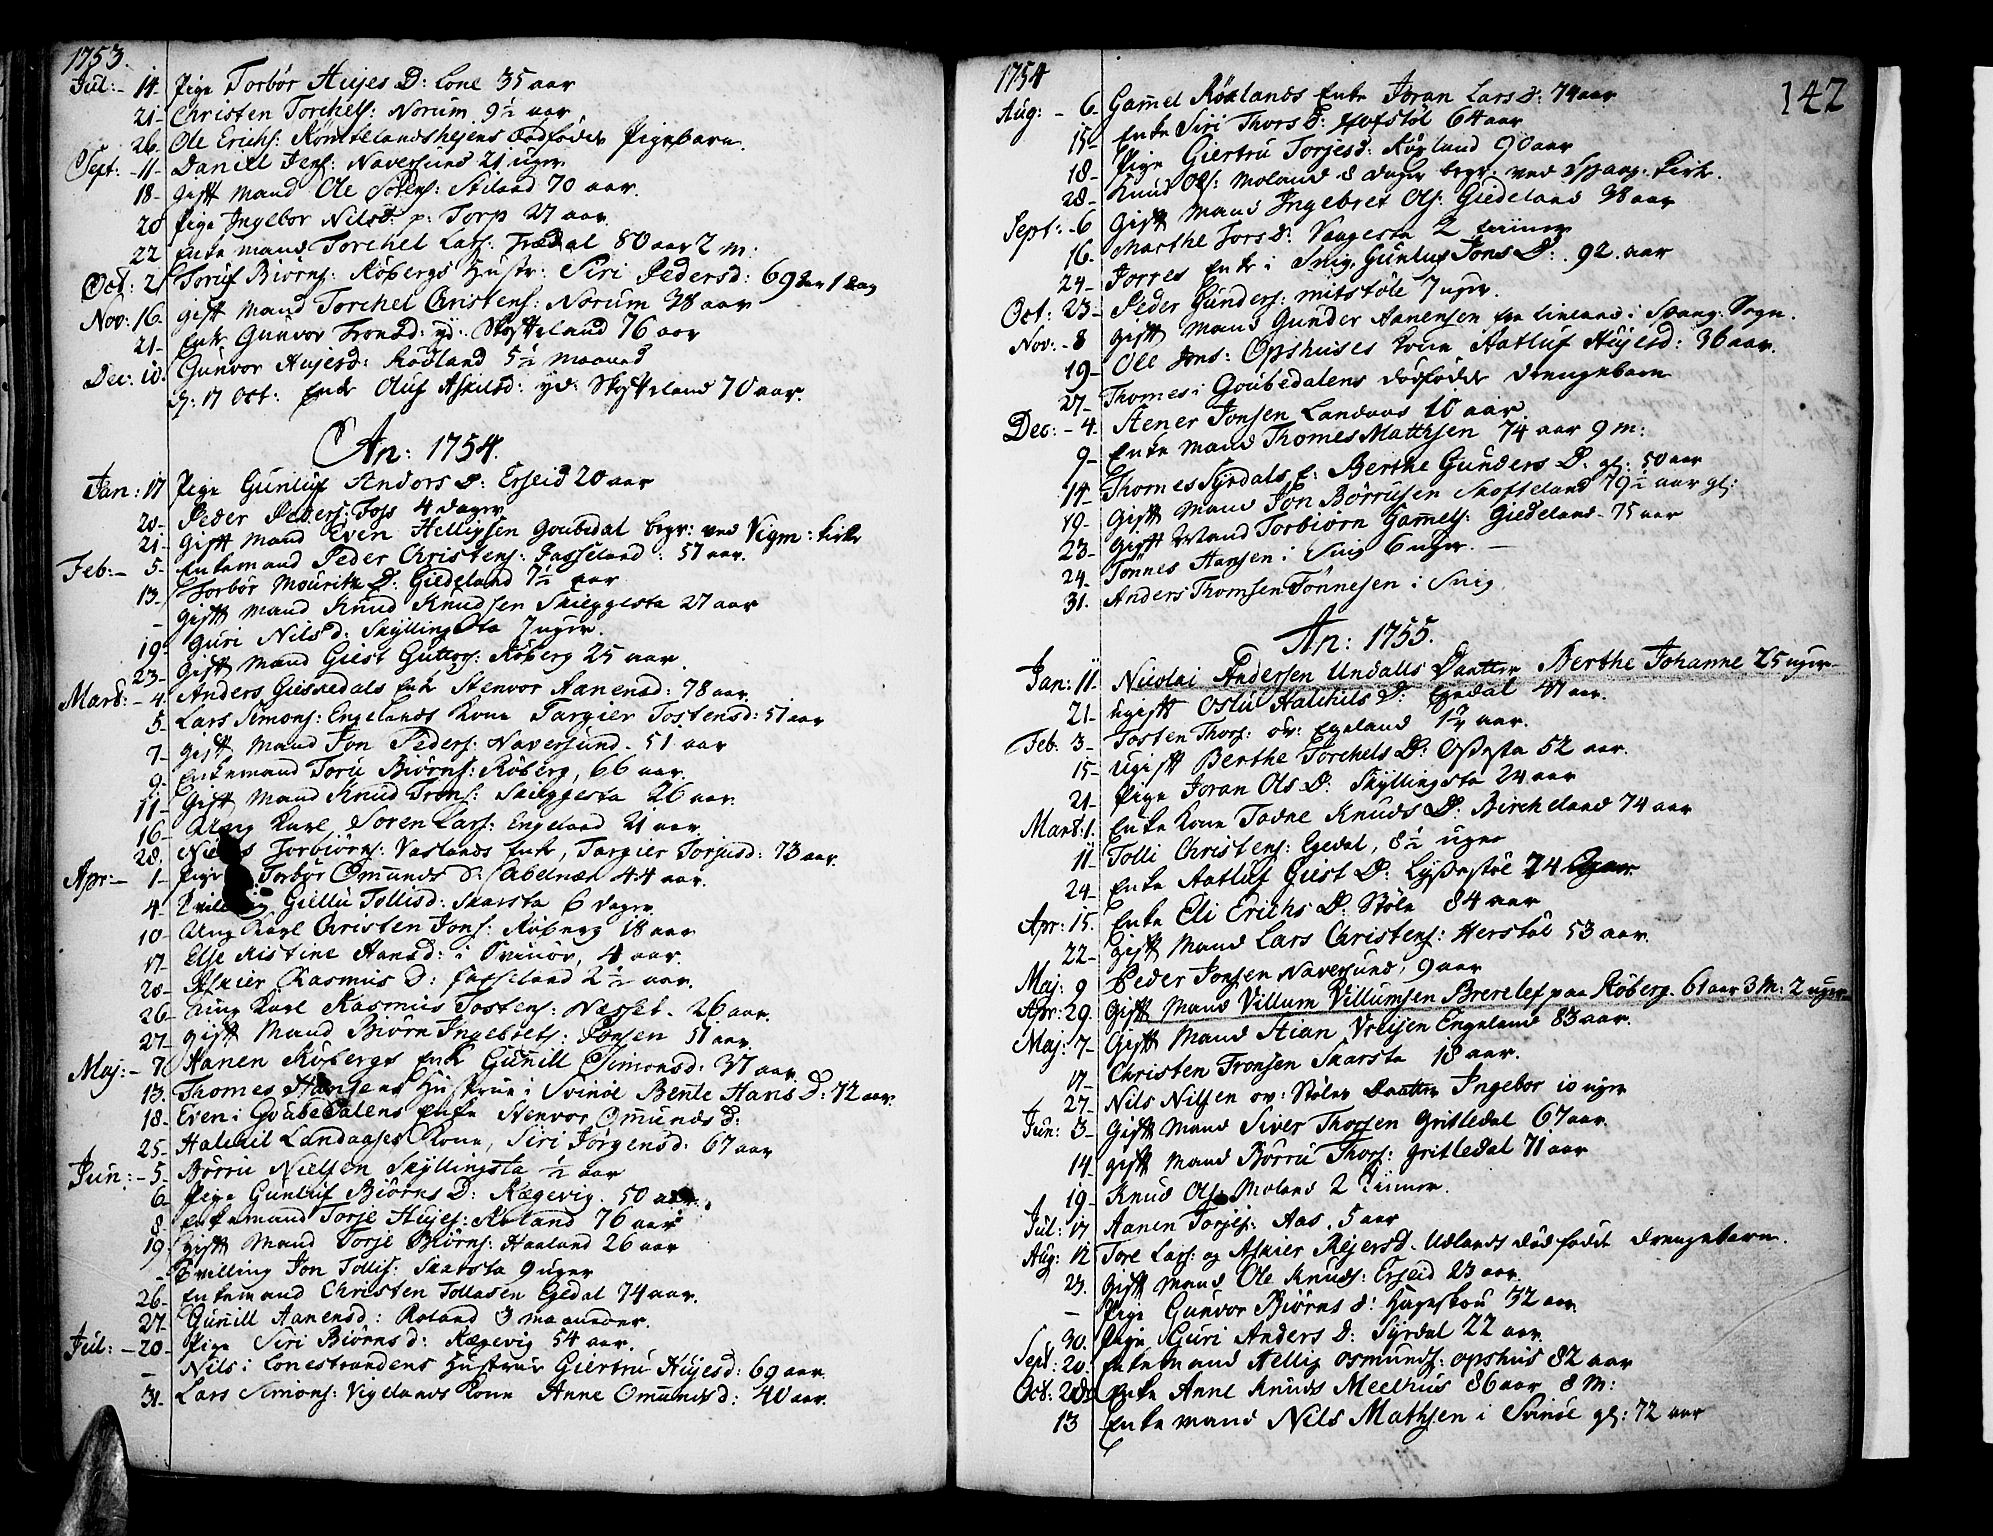 1753.
Jul: - 14. Pige Torbór Hujes D: Lone 35 aar
21- Christen Torchels: Norum 9½ aar
26. Ole Erichs: dödfödde Pigebarn.
Sept: - 11- Daniel Jens: Naversund 21 uger
18- Gift Mand Ole 70 aar.
20 Pige Ingebor Nilsd: p: Torp 27 aar
22 Enkemand Torchel Lars: Frædal 80 aar 2 m:
Oct: 21 Toruf Biörns: Röbergs Hustr: Siri Pedersd: 69 aar 1 dag
Nov: 16. gift Mand Torchel Christens: Norum 38 aar
21- Enke Gunvor Tronsd: yd: Skofteland 76 aar
Dec: 10. Gunvor Hujesd: Rödland 5½ maaned
17 Oct: Enke Oluf Aslulsd: yd: Skofteland 70 aar.
An: 1754.
Jan: 17 Pige Gunluf Andors D: Erseid 20 aar
20- Peder Peders: Foss 4 dager
21- Gift Mand Even Helliysen Goubedal begr: ved Vigm: Kirke
Feb: - 5- Enkemand Peder Christens: Fasseland: 57 aar.
13- Torbór Mouritz D: Giedeland 7½ aar
- Gift Mand Knud Knudsen Skieggesta 27 aar
19- Guri Nilsd: Skyllingsta 7 uger.
23- Gift Mand Giest Guttors: Röberg 25 aar.
Mart: - 4. Anders Gusledals Enke Stenvor Aanensd: 78 aar
5. Lars Simons: Engelands Kone Targier Tostensd: 51 aar
7- Gift Mand Jon Peders: Naversund. 51 aar
9. Enkemand Toru Biörns: Röberg, 66 aar.
11- Gift Mand Knud Trons: Skieggesta 26 aar.
16- Ung Karl, Soren Lars: Engeland 21 aar.
28. Niels Torbiörns: Vaslands Enke, Targier Torjusd: 73 aar.
Apr: - 1- Pige Torbór Omunds D: 44 aar.
4- Tvilling Giellu Tollisd: Skarsta 6 dager
10- Ung Karl Christen Jons: Röberg 18 aar
17- Else Kistine Hansd: i Svinör, 4 aar.
20- Askier Rasmus D: Fasseland 2½ aar.
26- Ung Karl Rasmus Tostens: Næsset. 26 aar.
27- gift Mand Biörn Ingebrets: Jonsen 51 aar.
Maj: - 7. Aanen Röbergs Enke Gunill Simonsd: 37 aar.
13. Thomes Hansens Hustrue i Svinöe Bente Hans D: 72 aar.
18- Even i Goubedalens Enke Stenvor Omunds D:
25- Halkil Landaases Kone, Siri Jörgensd: 67 aar
Jun: - 5- Börru Nielsen Skyllingsta ½ aar
6- Pige Gunluf Biörns D: Rægevig. 50 aar.
8. Enkemand Torje Hujes: Roland 76 aar
19. Gift Mand Torje Biörns: Haaland 26 aar
- Tvilling Jon Tollis: Skarsta 9 uger
26- Enkemand Christen Tollasen Egedal 74 aar.
27- Gunill Aanensd: Roland 3 maaneder.
Jul: - 20- Pige Siri Biörnsd: Rægevig 54 aar.
- Nils i Lonestrandens Hustrue Giertru Hujesd: 69 aar.
31- Lars Simons: Vigelands Kone Anne Omundsd: 40 aar.
1754
142
Aug: - 6- Gamel Röelands Enke Joran Lars D: 74 aar
15- Enke Siri Thors D: Hofstöl 64 aar
18- Pige Giertru Torjesd: Röeland 90 aar
28- Knud Ols: Moland 8 dager begr: ved Spang: Kirke.
Sept: - 6 Gift Mand Ingebret Ols: Giedeland 38 aar
16- Marthe Torsd: Vaagesta 2 timer
24- Jorres Enke i Snig, Gunluf Jons D: 92. aar
Oct: 23- Peder Gunders: Mitstöle 7 uger.
Nov: - 8 gift Mand Gunder Aanensen fra Lineland i Spang: Sogn.
19- Ole Jens: Opshuses Kone Aatluf Hujesd: 36 aar.
27- Thomes i Goubedalens dödfödde drengebarn
Dec: - 4. Stener Jonsen Landaas 10 aar.
9- Enke Mand Thomes Mathsen 74 aar 9 m:
14- Thomes Syrdals E: Berthe Gunders D. gl: 50 aar
19- Gift Mand Jon Börrusen Skofteland 79½ aar gl:
23- Gift Mand Torbiörn Gamels: Giedeland. 75 aar
24. Tönnes Hansen i Snig 6 uger. -
31. Anders Thomsen Tönnesen i Snig
An: 1755.
Jan: 11. Nicolai Andersen Undalls Daatter Berthe Johanne 25 uger
21- ugift Oslu Halchils D: Egedal 47 aar.
Feb. 3- Tosten Thors: öv: Egeland 1¾ aar.
15- Ugift Berthe Torchels D: Ossesta 52 aar.
21- Pige Joran Ols D: Skyllingsta 24 aar
Mart: 1. Enke Kone Tadne Knuds D: Bircheland 74 aar
11- Tolli Christens: Egedal, 8½ uger
24- Enke Aatluf Giest D: Lyssestöl 74 aar
Apr: 15. Enke Eli Erichs D: Stöle 84 aar
22- Gift Mand Lars Christens: Herstöl 53 aar.
Maj: 9 Peder Jonsen Naversund, 9 aar
Apr: 29. Gift Mand Villum Villumsen Brerelef paa Röberg. 61 aar 3 M: 2 uger
Maj: 7- Gift Mand Stian Vreisen Engeland 83 aar.
17- Christen Tronsen Skarsta 18 aar.
27- Nils Nilsen ov: Stölen Daatter Ingebor 10 uger
Jun: 3- Gift Mand Siver Thorsen Gritledal 67 aar.
14- gift Mand Börru Thors: Gritledal 71 aar
19- Knud Ols: Moland 2 timer.
Jul: 17 Aanen Torjes: Aas. 5 aar
Aug: 12 Tore Lars: og Askier Rejersd. Udlands dödfödt drengebarn.
23. Gift Mand Ole Knuds: Erseid 23 aar
- Pige Gunvor Biörns D: Hageskou 32 aar.
30. Pige Guri Anders D: Syrdal 22 aar.
Sept: 20. Enkemand Hellig Osmunds: Opshus 82 aar
Oct: Enke Anne Knuds Meelhus 86 aar 8 M:
13 Enke Mand Nils Mathsen i Svinöe gl: 72 aar